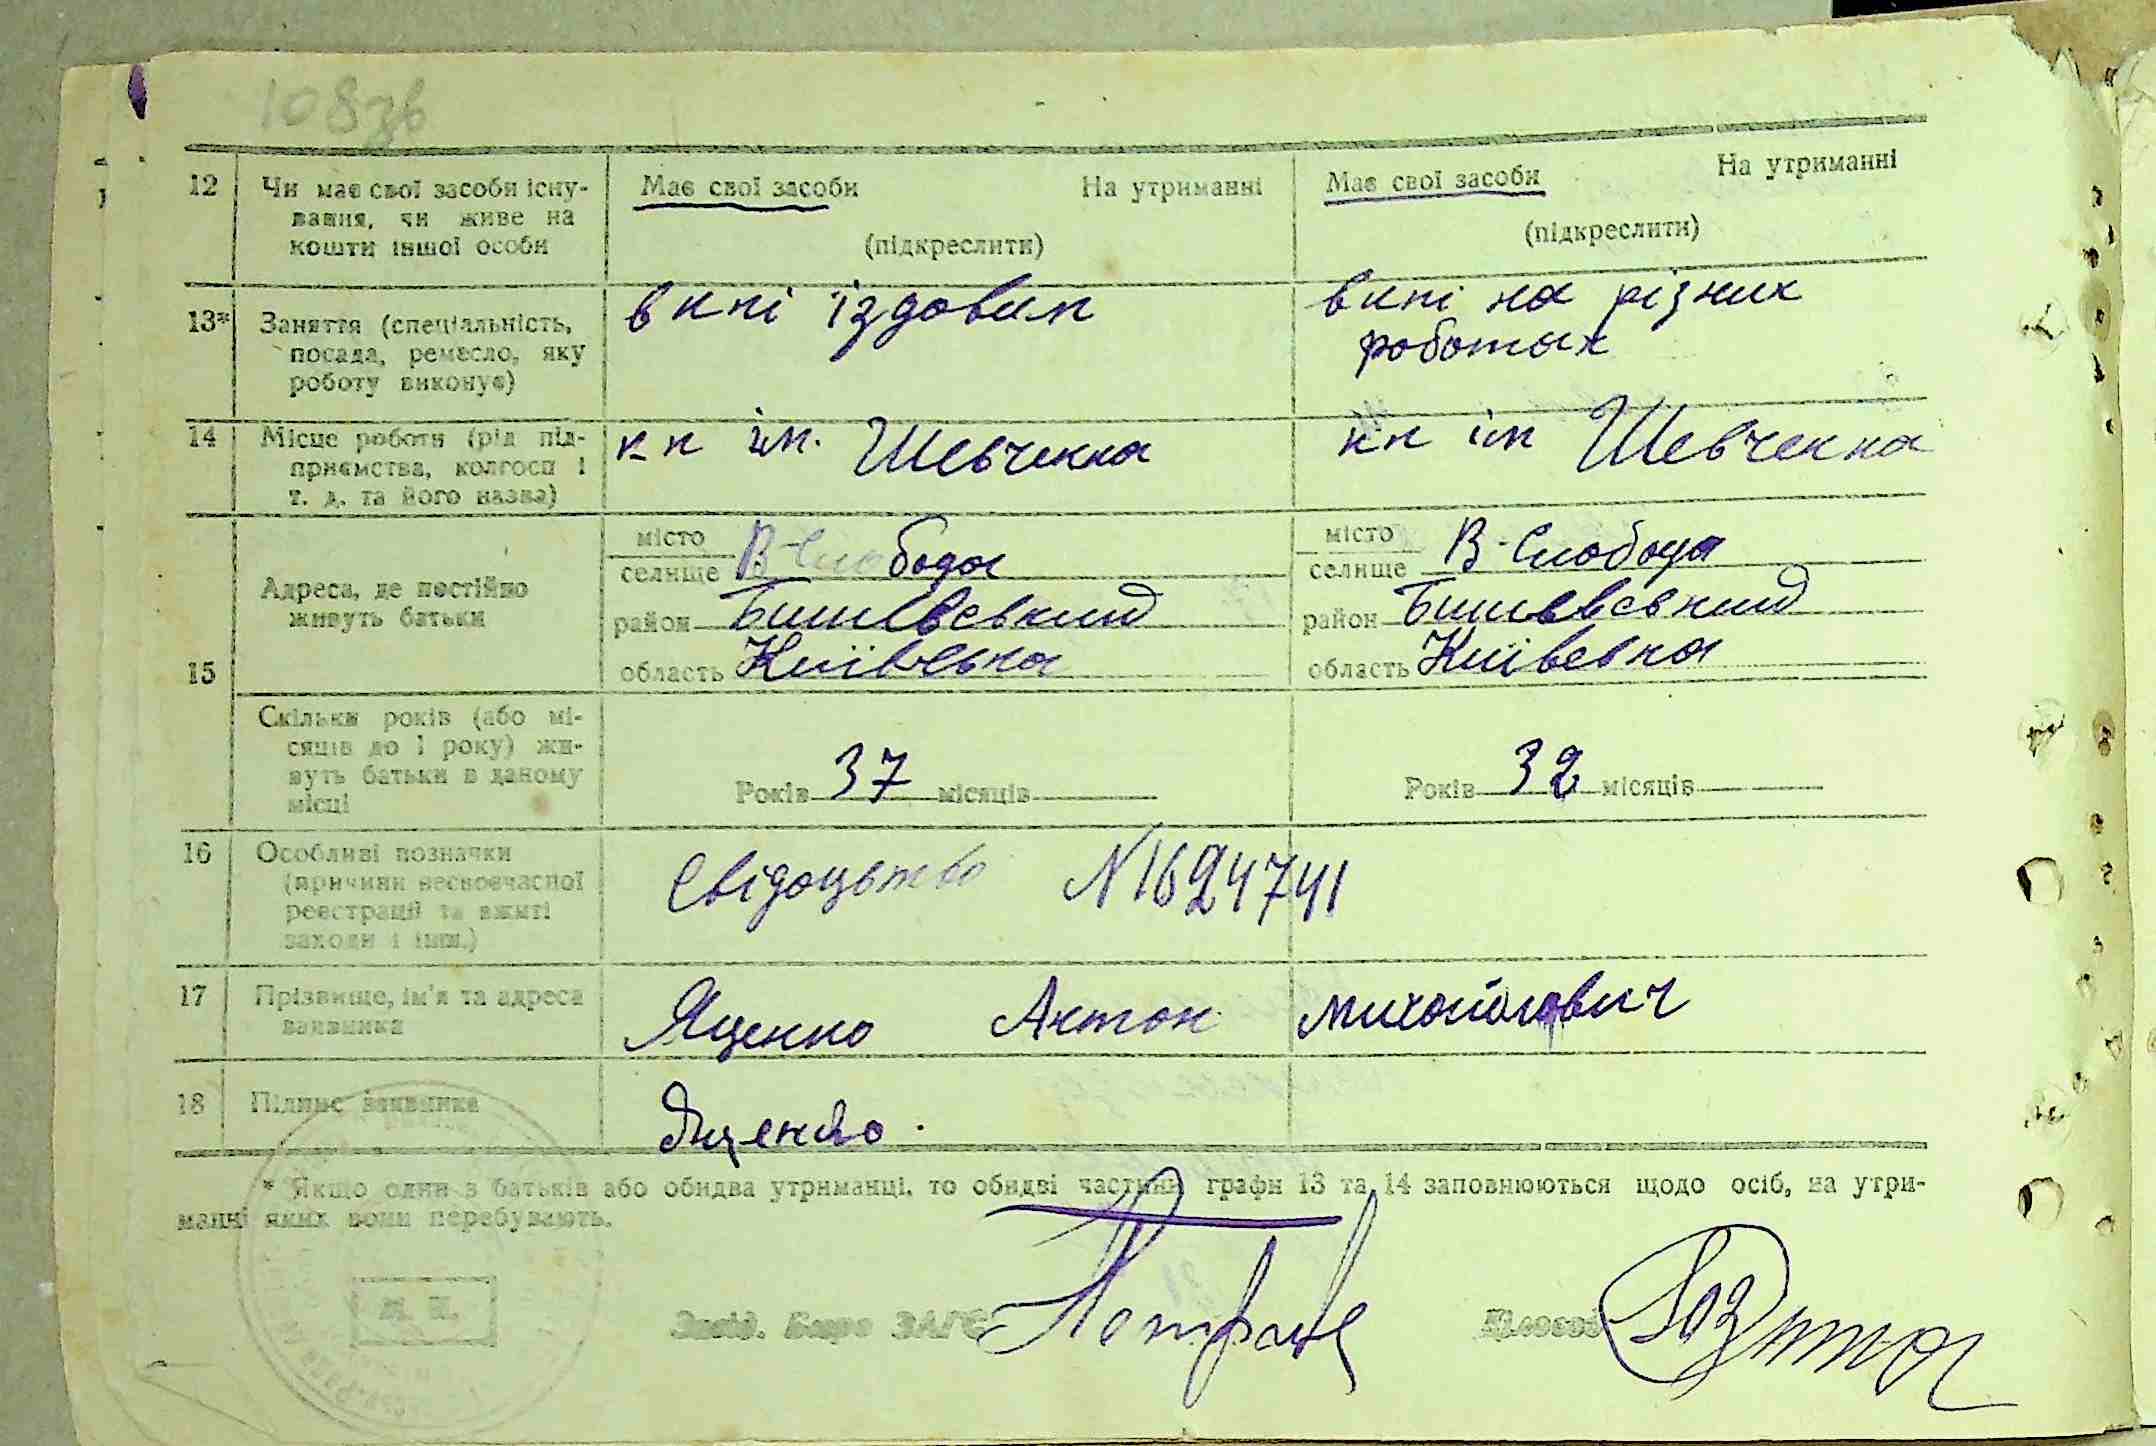 108зв
12 Чи має свої засоби існу- Має свої засоби На утриманні Має свої засоби На утриманні
вання, чи живе на
кошти іншої особи (підкреслити) (підкреслити)
13* Заняття (спеціальність, в кпі їздовим в кпі на різних
посада, ремесло, яку роботах
роботу виконує)
14 Місце роботи (рід під- кп ім. Шевченка кп ім Шевченка
приємства, колгосп і
т. д. та його назва)
15 Адреса, де постійно
живуть батьки
місто В-Слобода місто В-Слобода
селище селище
район Бишівський район Бишевський
область Київська область Київська
Скільки років (або мі-
сяців до 1 року) жи-
вуть батьки в даному
місці
Років 37 місяців Років 32 місяців
16 Особливі позначки Свідоцьтво N1694741
(причини несвоєчасної
реєстрації та вжиті
заходи і інш.)
17 Прізвище, ім'я та адреса Яценко Антон Михайлович
заявника
18 Підпис заявника Яценко.
* Якщо один з батьків або обидва утриманці, то обидві частини графи 13 та 14 заповнюються щодо осіб, на утри-
манні яких вони перебувають.
М. П.
Завід. Бюро ЗАГС
Діловод